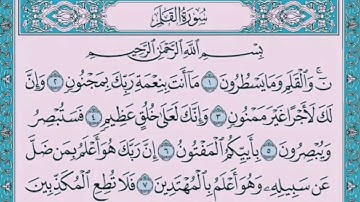 سُورَةُ القَلَمِ
بِسْمِ اللَّهِ الرَّحْمَٰنِ الرَّحِيمِ
نٓ ۚ وَالْقَلَمِ وَمَا يَسْطُرُونَ ١ مَا أَنتَ بِنِعْمَةِ رَبِّكَ بِمَجْنُونٍ ٢ وَإِنَّ
لَكَ لَأَجْرًا غَيْرَ مَمْنُونٍ ٣ وَإِنَّكَ لَعَلَىٰ خُلُقٍ عَظِيمٍ ٤ فَسَتُبْصِرُ
وَيُبْصِرُونَ ٥ بِأَييِّكُمُ الْمَفْتُونُ ٦ إِنَّ رَبَّكَ هُوَ أَعْلَمُ بِمَن ضَلَّ
عَن سَبِيلِهِ وَهُوَ أَعْلَمُ بِالْمُهْتَدِينَ ٧ فَلَا تُطِعِ الْمُكَذِّبِينَ